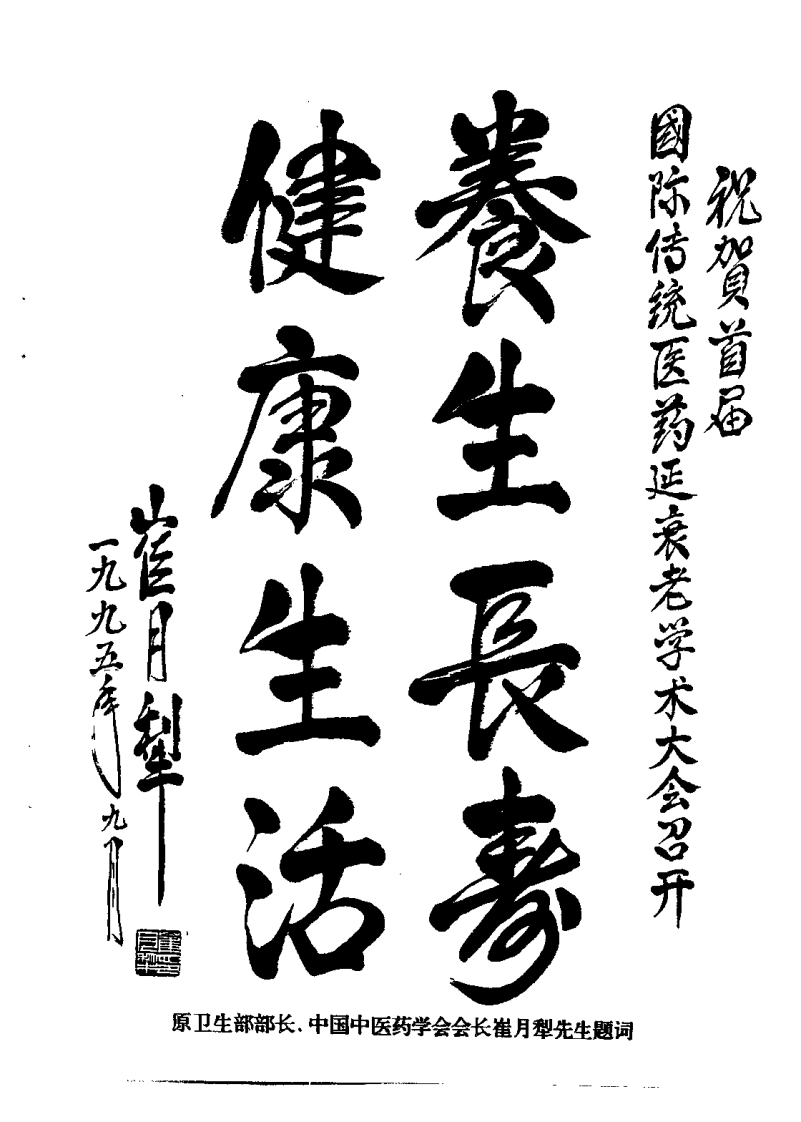 祝贺首届
國际传统医药延衰老学术大会召开
養生長寿
健康生活
崔月犁
一九九五年九月
原卫生部部长、中国中医药学会会长崔月犁先生题词